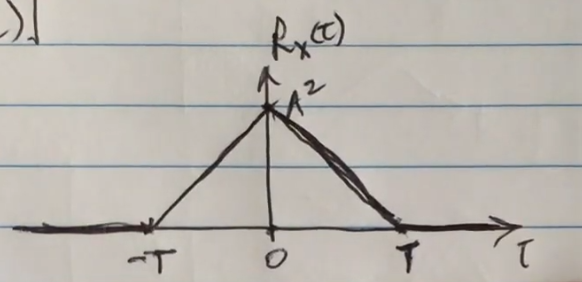 )]
Rx(τ)
A²
-T 0 T τ